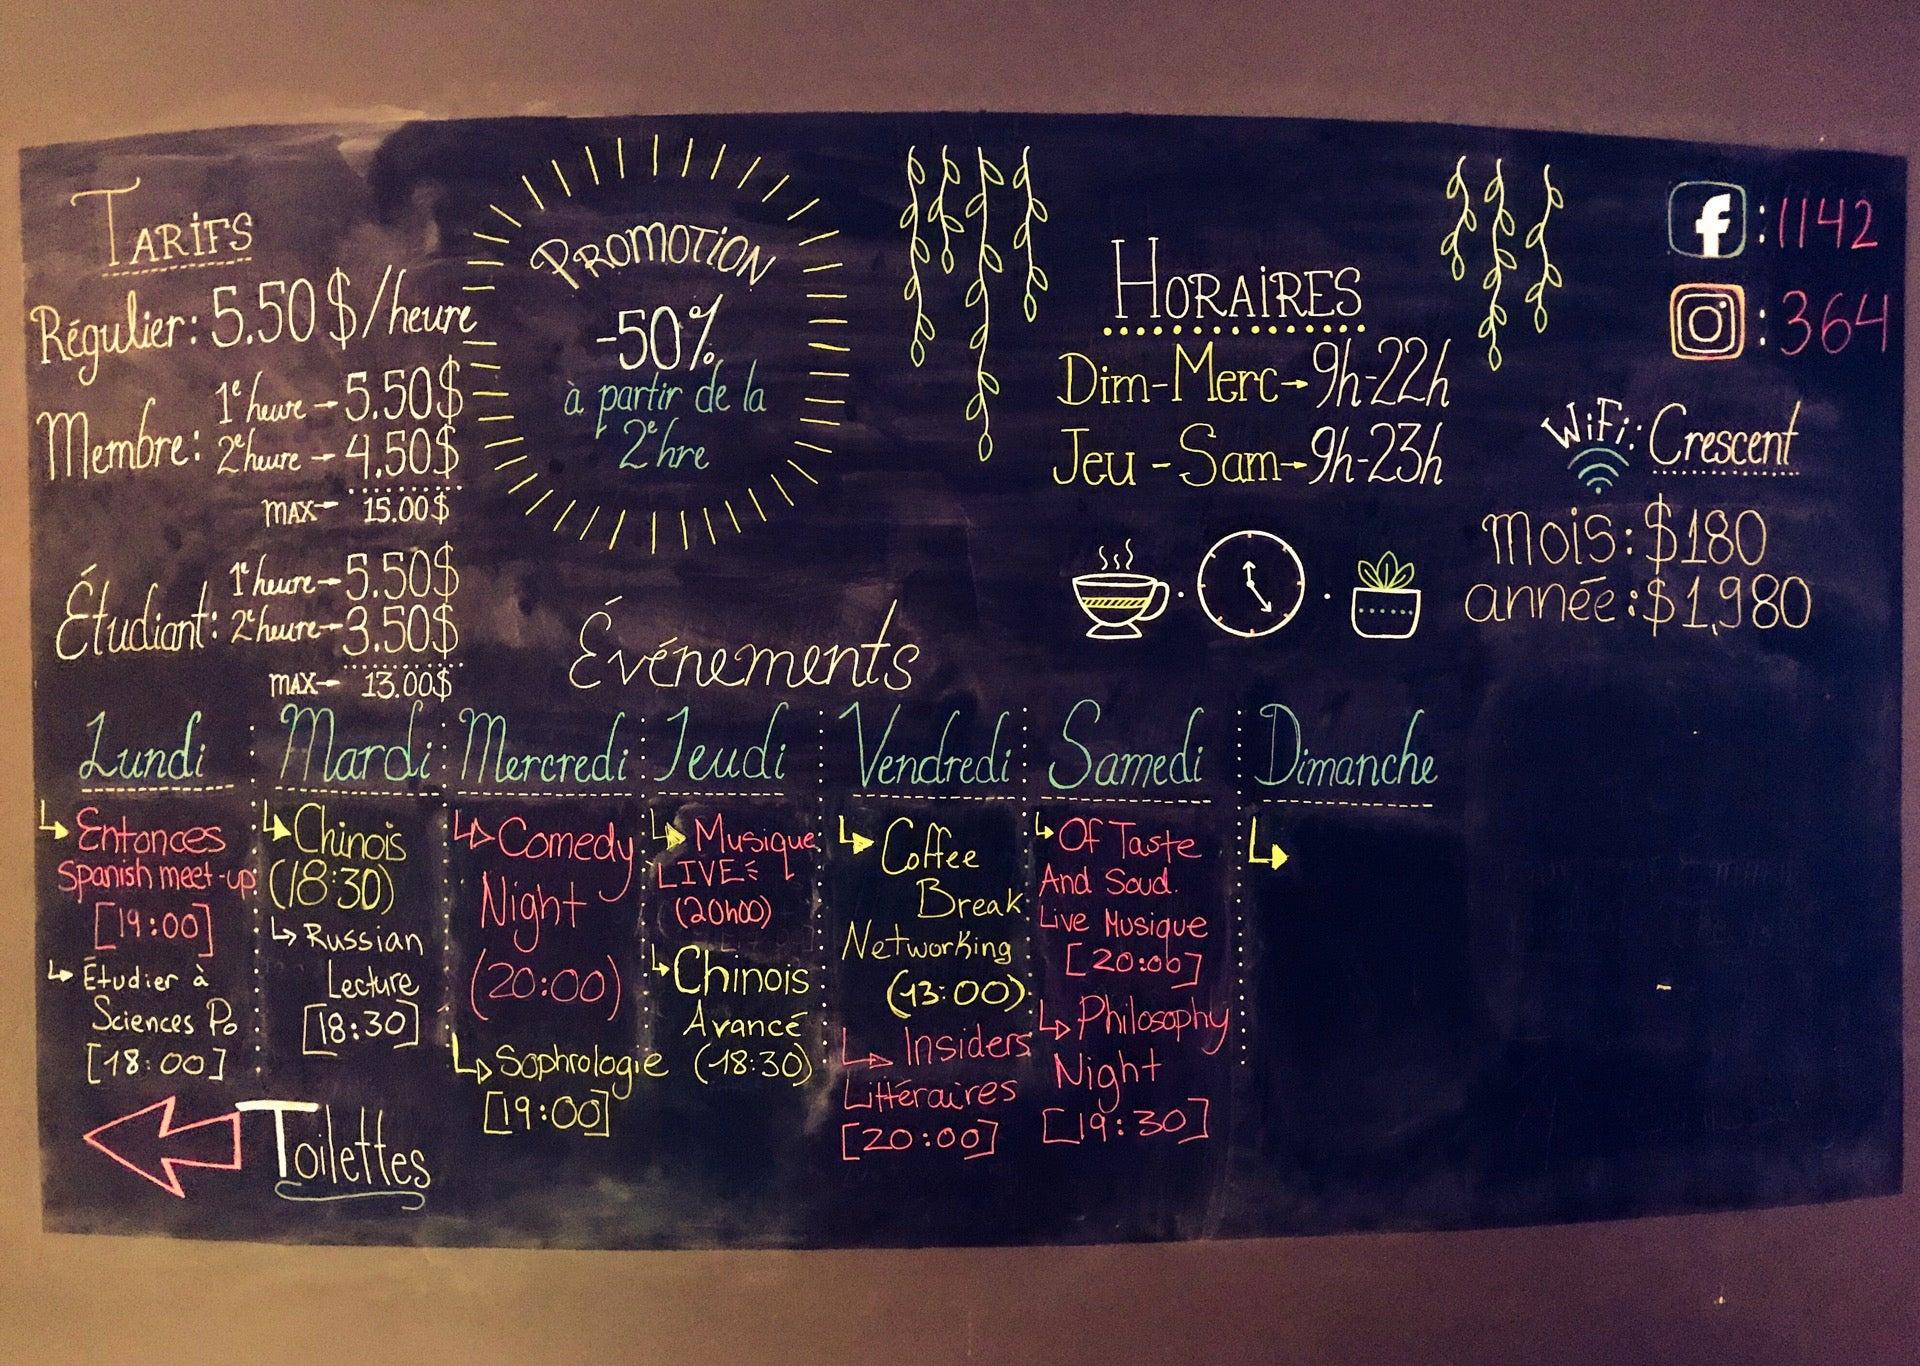 Tarifs
Régulier: 5.50$/heure
Membre: 1e heure → 5.50$
2e heure → 4.50$
max → 15.00$
Étudiant: 1e heure → 5.50$
2e heure → 3.50$
max → 13.00$
Promotion
-50%
à partir de la
2e hre
Horaires
Dim-Merc → 9h-22h
Jeu-Sam → 9h-23h
f : 1142
: 364
WiFi: Crescent
mois: $180
année: $1,980
Événements
Lundi
Entonces
Spanish meet-up
[19:00]
Étudier à
Sciences Po
[18:00]
Mardi
Chinois
(18:30)
Russian
Lecture
[18:30]
Mercredi
Comedy
Night
(20:00)
Sophrologie
[19:00]
Jeudi
Musique
LIVE
(20h00)
Chinois
Avancé
(18:30)
Vendredi
Coffee
Break
Networking
(13:00)
Insiders
Littéraires
[20:00]
Samedi
Of Taste
And Soud.
Live Musique
[20:00]
Philosophy
Night
[19:30]
Dimanche
Toilettes